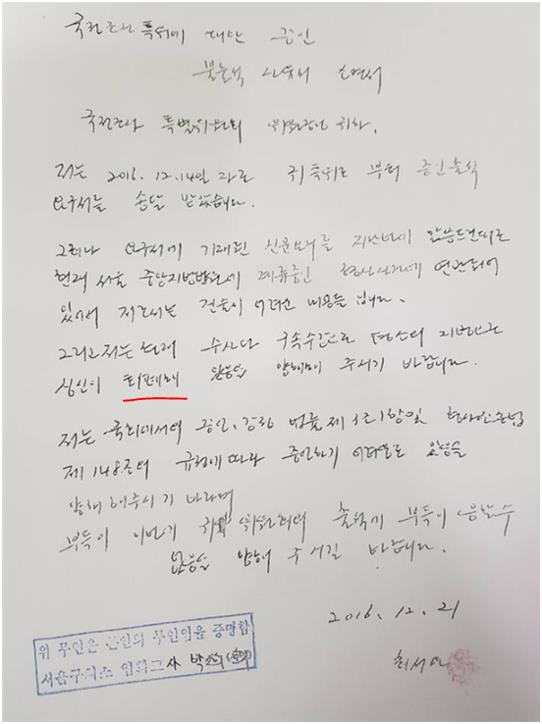 국정조사 특위에 대한 증인
불출석 사유서 소명서
국정조사 특별위원회 위원장님 귀하.
저는 2016. 12. 14일 자로 귀 특위로 부터 증인출석
요구서를 송달 받았습니다.
그러나 요구서에 기재된 신문요지를 지난번에 말씀드린대로
현재 서울 중앙지방법원에 계류중인 형사사건에 연관되어
있어서 저로서는 진술이 어려운 내용들 입니다.
그리고 저는 현재 수사와 구속수감으로 평소의 지병으로
심신이 피폐해 있음을 양해해 주시기 바랍니다.
저는 국회에서의 증언, 감정 법률 제3조1항및 형사소송법
제148조의 규정에 따라 증언하기 어려우므로 있음을
양해 해주시기 바라며
부득이 이번기 귀 위원회에 출석기 부득이 응할수
없음을 양해 주시길 바랍니다.
2016. 12. 21
최서원
위 무인은 본인의 무인임을 증명함
서울구치소 교 박